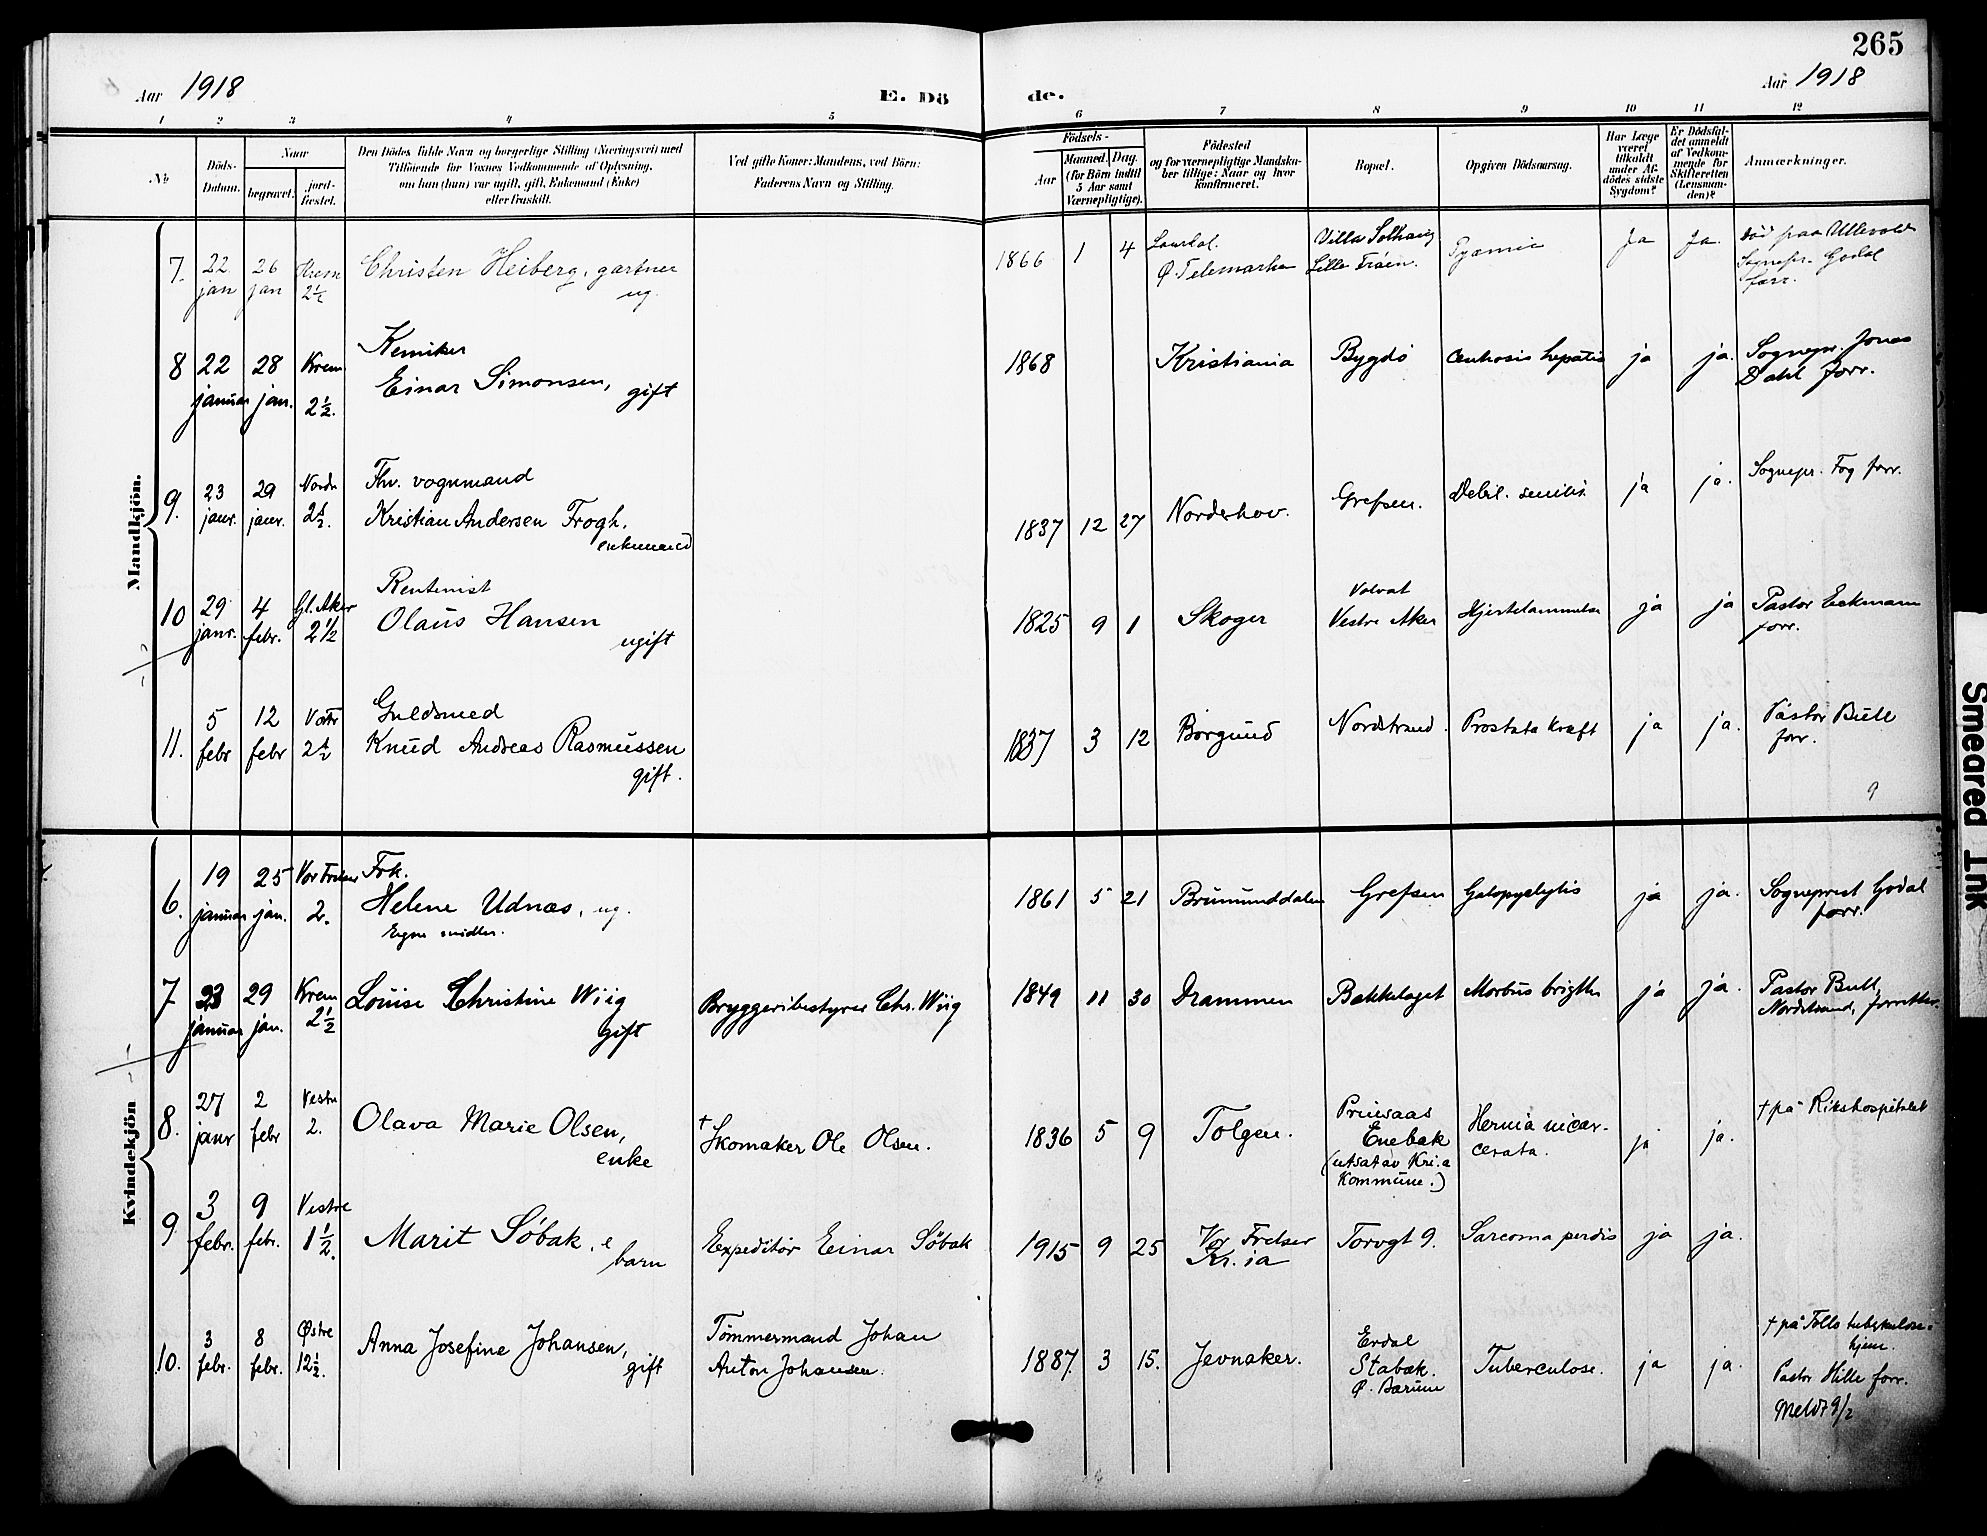 265
Aar 1918
E. Dö
de.
Aar 1918
1 2 3 4 5 6 7 8 9 10 11 12
№
Döds-Datum.
Naar
begravet.
jord-fæstet.
Den Dødes fulde Navn og borgerlige Stilling (Næringsvei) med
Tilföiende for Voxnes Vedkommende af Oplysning,
om han (hun) var ugift, gift, Enkemand (Enke)
eller fraskilt.
Ved gifte Koner: Mandens, ved Börn:
Faderens Navn og Stilling.
Födsels-
Aar
Maaned. Dag.
(for Börn indtil
5 Aar samt
Værnepligtige).
Födested
og for værnepligtige Mandska-
ber tillige: Naar og hvor
konfirmeret.
Bopæl.
Opgiven Dödsaarsag.
Har Læge
været
tilkaldt
under Af-
dödes sidste
Sygdom?
Er Dödsfal-
det anmeldt
af Vedkom-
mende for
Skifteretten
(Lensman-
den)?
Anmærkninger.
Mandkjön.
7. 22 jan 26 jan Krem 2½ Christen Heiberg, gartner ug. 1866 1 4 Ø. Telemarken Villa Solhaug Lille Frøen. Pyæmie Ja Ja. Død paa Ullevold Sognepr. Godal forr.
8 22 januar 28 jan. Krem 2½. Kemiker
Einar Simonsen, gift 1868 Kristiania Bygdö hepatis ja ja. Sognepr. Jonas Dahl forr.
9. 23 janr. 29 janr. Nordr 2½. Fhv. vognmand
Kristian Andersen Frogh. enkemand 1837 12 27 Norderhov. Grefsen. Debil. senilis ja ja. Sognepr. Fog forr.
10 29 janr. 4 febr. Gl. Aker 2½ Rentenist
Olaus Hansen ugift 1825 9 1 Skoger Volvat Vestre Aker Hjertelammelse ja ja Pastor Eckmann forr.
11. 5 febr 12 febr 2½ Guldsmed
Knud Andreas Rasmussen gift. 1837 3 12 Borgund Nordstrand. Prostata kræft ja ja. Pastor Bull forr.
9
Kvindekjön
6. 19 januar 25 jan. Vor Frelser 2. Frk.
Helene Udnæs, ug.
Egne midler. 1861 5 21 Brumunddalen Grefsen ja ja. Sogneprest Godal forr.
7 23 januar 29 jan. Krem 2½ Louise Christine Wiig gift Bryggeribestyrer Chr. Wiig 1849 11 30 Drammen Bækkelaget Morbus brigthi ja ja. Pastor Bull, Nordstrand, forrettet.
8. 27 janr 2 febr Vestre 2. Olava Marie Olsen, enke † Skomaker Ole Olsen. 1836 5 9 Tolgen. Enebak (utsat av Kri.a Kommune.) Hernia incar-cerata. ja ja. † på Rikshospitalet
9 3 febr. 9 febr. Vestre 1½. Marit Söbak, e barn Expeditör Einar Söbak 1915 9 25 Vor Frelser Kr.ia Torvgt 9. Sarcoma ja ja.
10. 3 febr. 8 febr. Østre 12½. Anna Josefine Johansen, gift Tömmermand Johan Anton Johansen. 1887. 3 15. Jevnaker. Erdal Stabæk. Ø. Bærum Tuberculose. ja ja. † på Tollo tuberkulose-hjem. Pastor Hille forr. Meldt 9/2
Smeared Ink